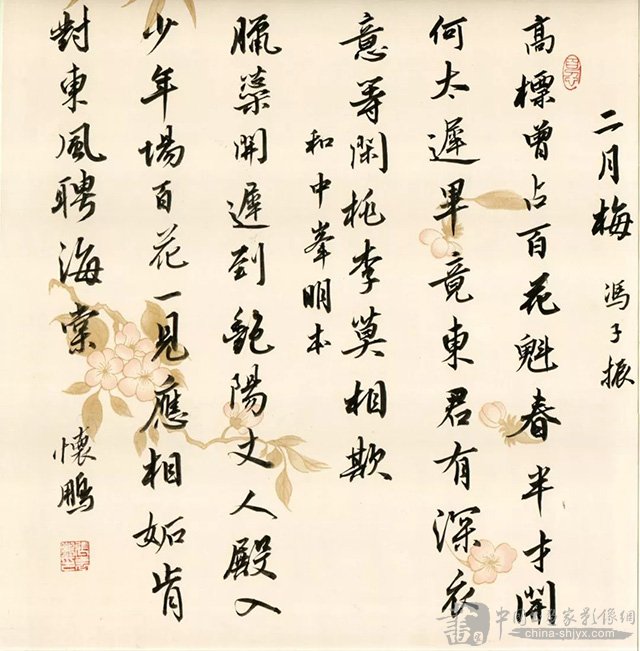 二月梅 馮子振
高標曾占百花魁春半才開
何太遲畢竟東君有深
意等閑桃李莫相欺
和中峯明本
臘蘂開遲到艶陽丈人殿入
少年場百花一見應相妬肯
對東風聘海棠
懷鵬
china-shjyx.com